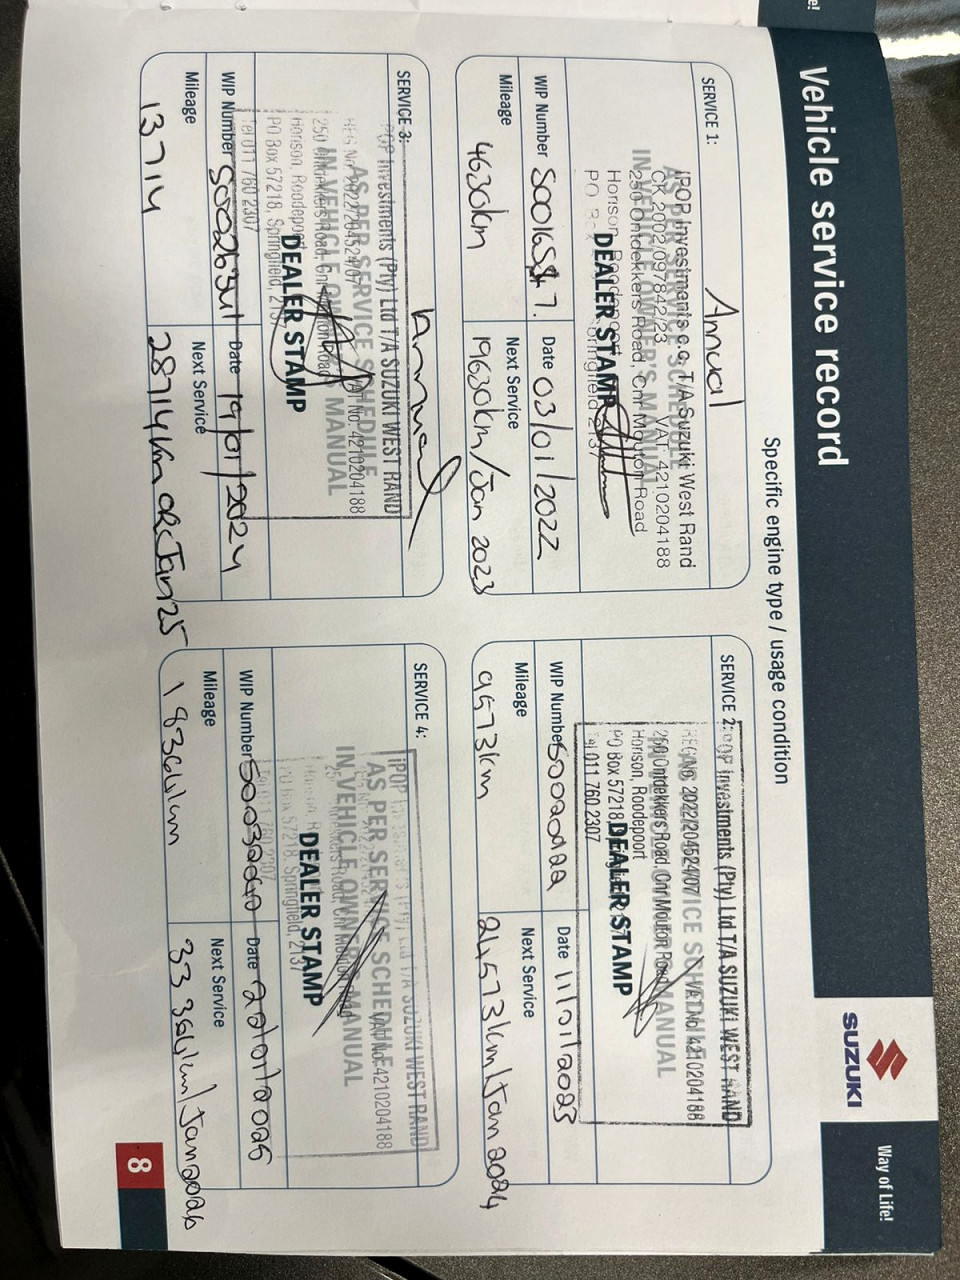 Vehicle service record
SUZUKI
Way of Life!
Specific engine type / usage condition
SERVICE 1:
Annual
IPOP Investments c.c. T/A Suzuki West Rand
CK 2002/097842/23 VAT: 4210204188
250 Ontdekkers Road, Cnr Mouton Road
Horison, Roodepoort
DEALER STAMP
WIP Number
Date 03/01/2022
Mileage 4630km
Next Service 19630km/Jan 2023
SERVICE 2:
Investments (Pty) Ltd T/A SUZUKI WEST RAND
REG No. 2022/204524/07 VAT No. 4210204188
250 Ontdekkers Road, Cnr Mouton Road
Horison, Roodepoort
PO Box 57218
DEALER STAMP
Tel 011 760 2307
WIP Number S0020122
Date 11/01/2023
Mileage 9573km
Next Service 24573km/Jan 2024
SERVICE 3:
Annual
Investments (Pty) Ltd T/A SUZUKI WEST RAND
AS PER SERVICE SCHEDULE
REG No. 2022/204524/07 VAT No. 4210204188
IN VEHICLE OWNER'S MANUAL
250 Ontdekkers Road, Cnr Mouton Road
Horison, Roodepoort
DEALER STAMP
PO Box 57218, Springfield, 2137
Tel 011 760 2307
WIP Number
Date 19/01/2024
Mileage 13714
Next Service 28714km OR Jan 25
SERVICE 4:
iPOP T/A SUZUKI WEST RAND
AS PER SERVICE SCHEDULE
VAT No. 4210204188
IN VEHICLE OWNER'S MANUAL
DEALER STAMP
PO Box 57218, Springfield, 2137
Tel 011 760 2307
WIP Number
Date
Mileage 18364km
Next Service 33364km/Jan 2026
8